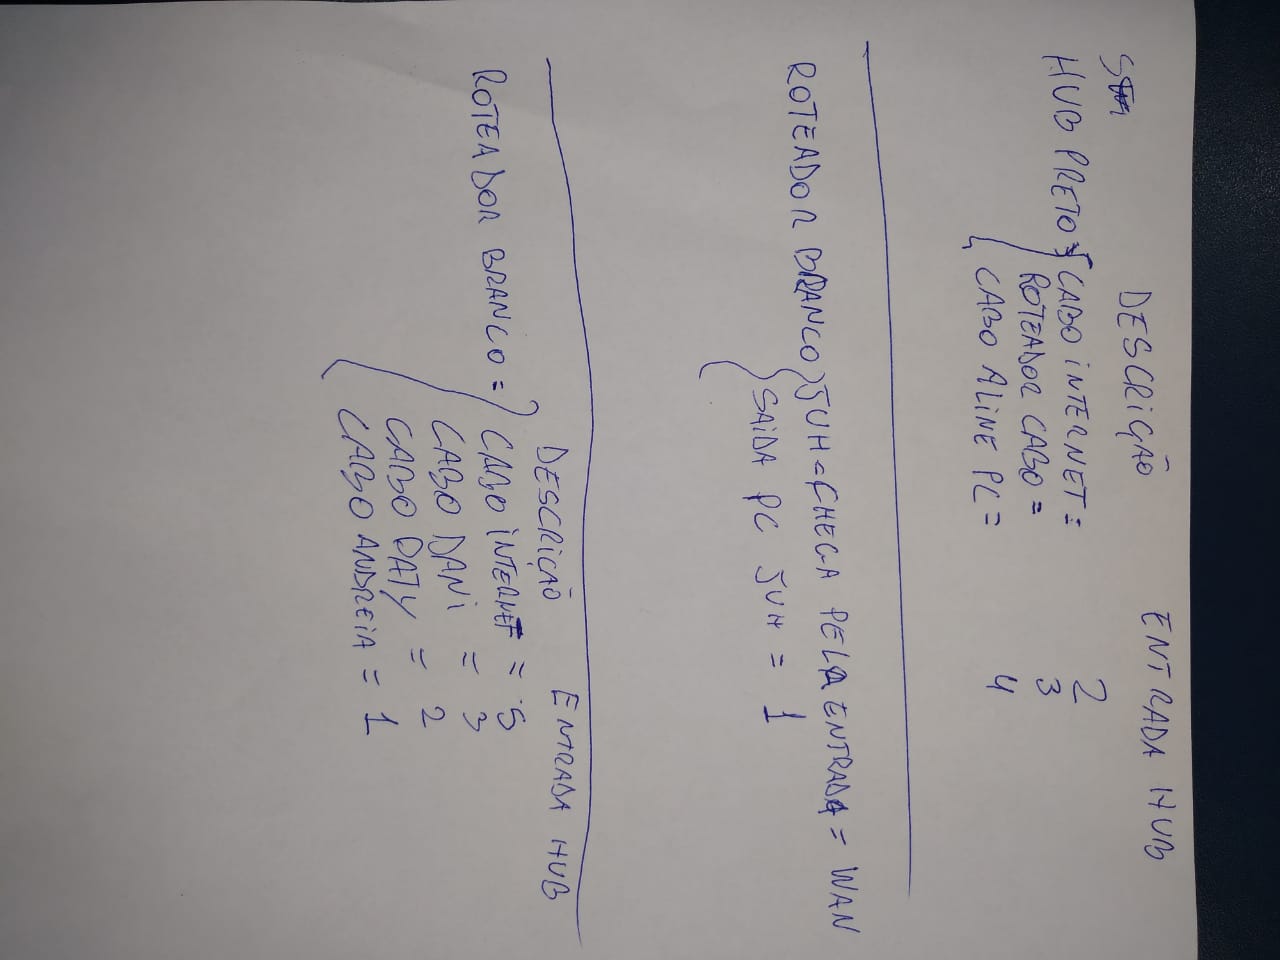 DESCRIÇÃO ENTRADA HUB
HUB PRETO { CABO INTERNET = 2
ROTEADOR CABO = 3
CABO ALINE PC = 4
ROTEADOR BRANCO } JUH = CHEGA PELA ENTRADA = WAN
SAIDA PC JUH = 1
DESCRIÇÃO ENTRADA HUB
ROTEADOR BRANCO = CABO INTERNET = 5
CABO DANI = 3
CABO PATY = 2
CABO ANDREIA = 1